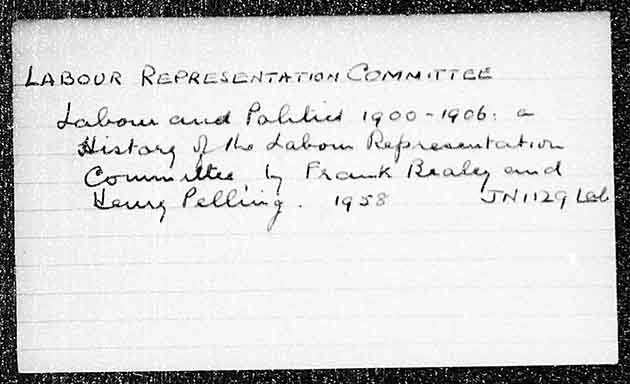 LABOUR REPRESENTATION COMMITTEE
Labour and Politics 1900-1906: a
History of the Labour Representation
Committee by Frank Bealey and
Henry Pelling. 1958 JN1129 Lab